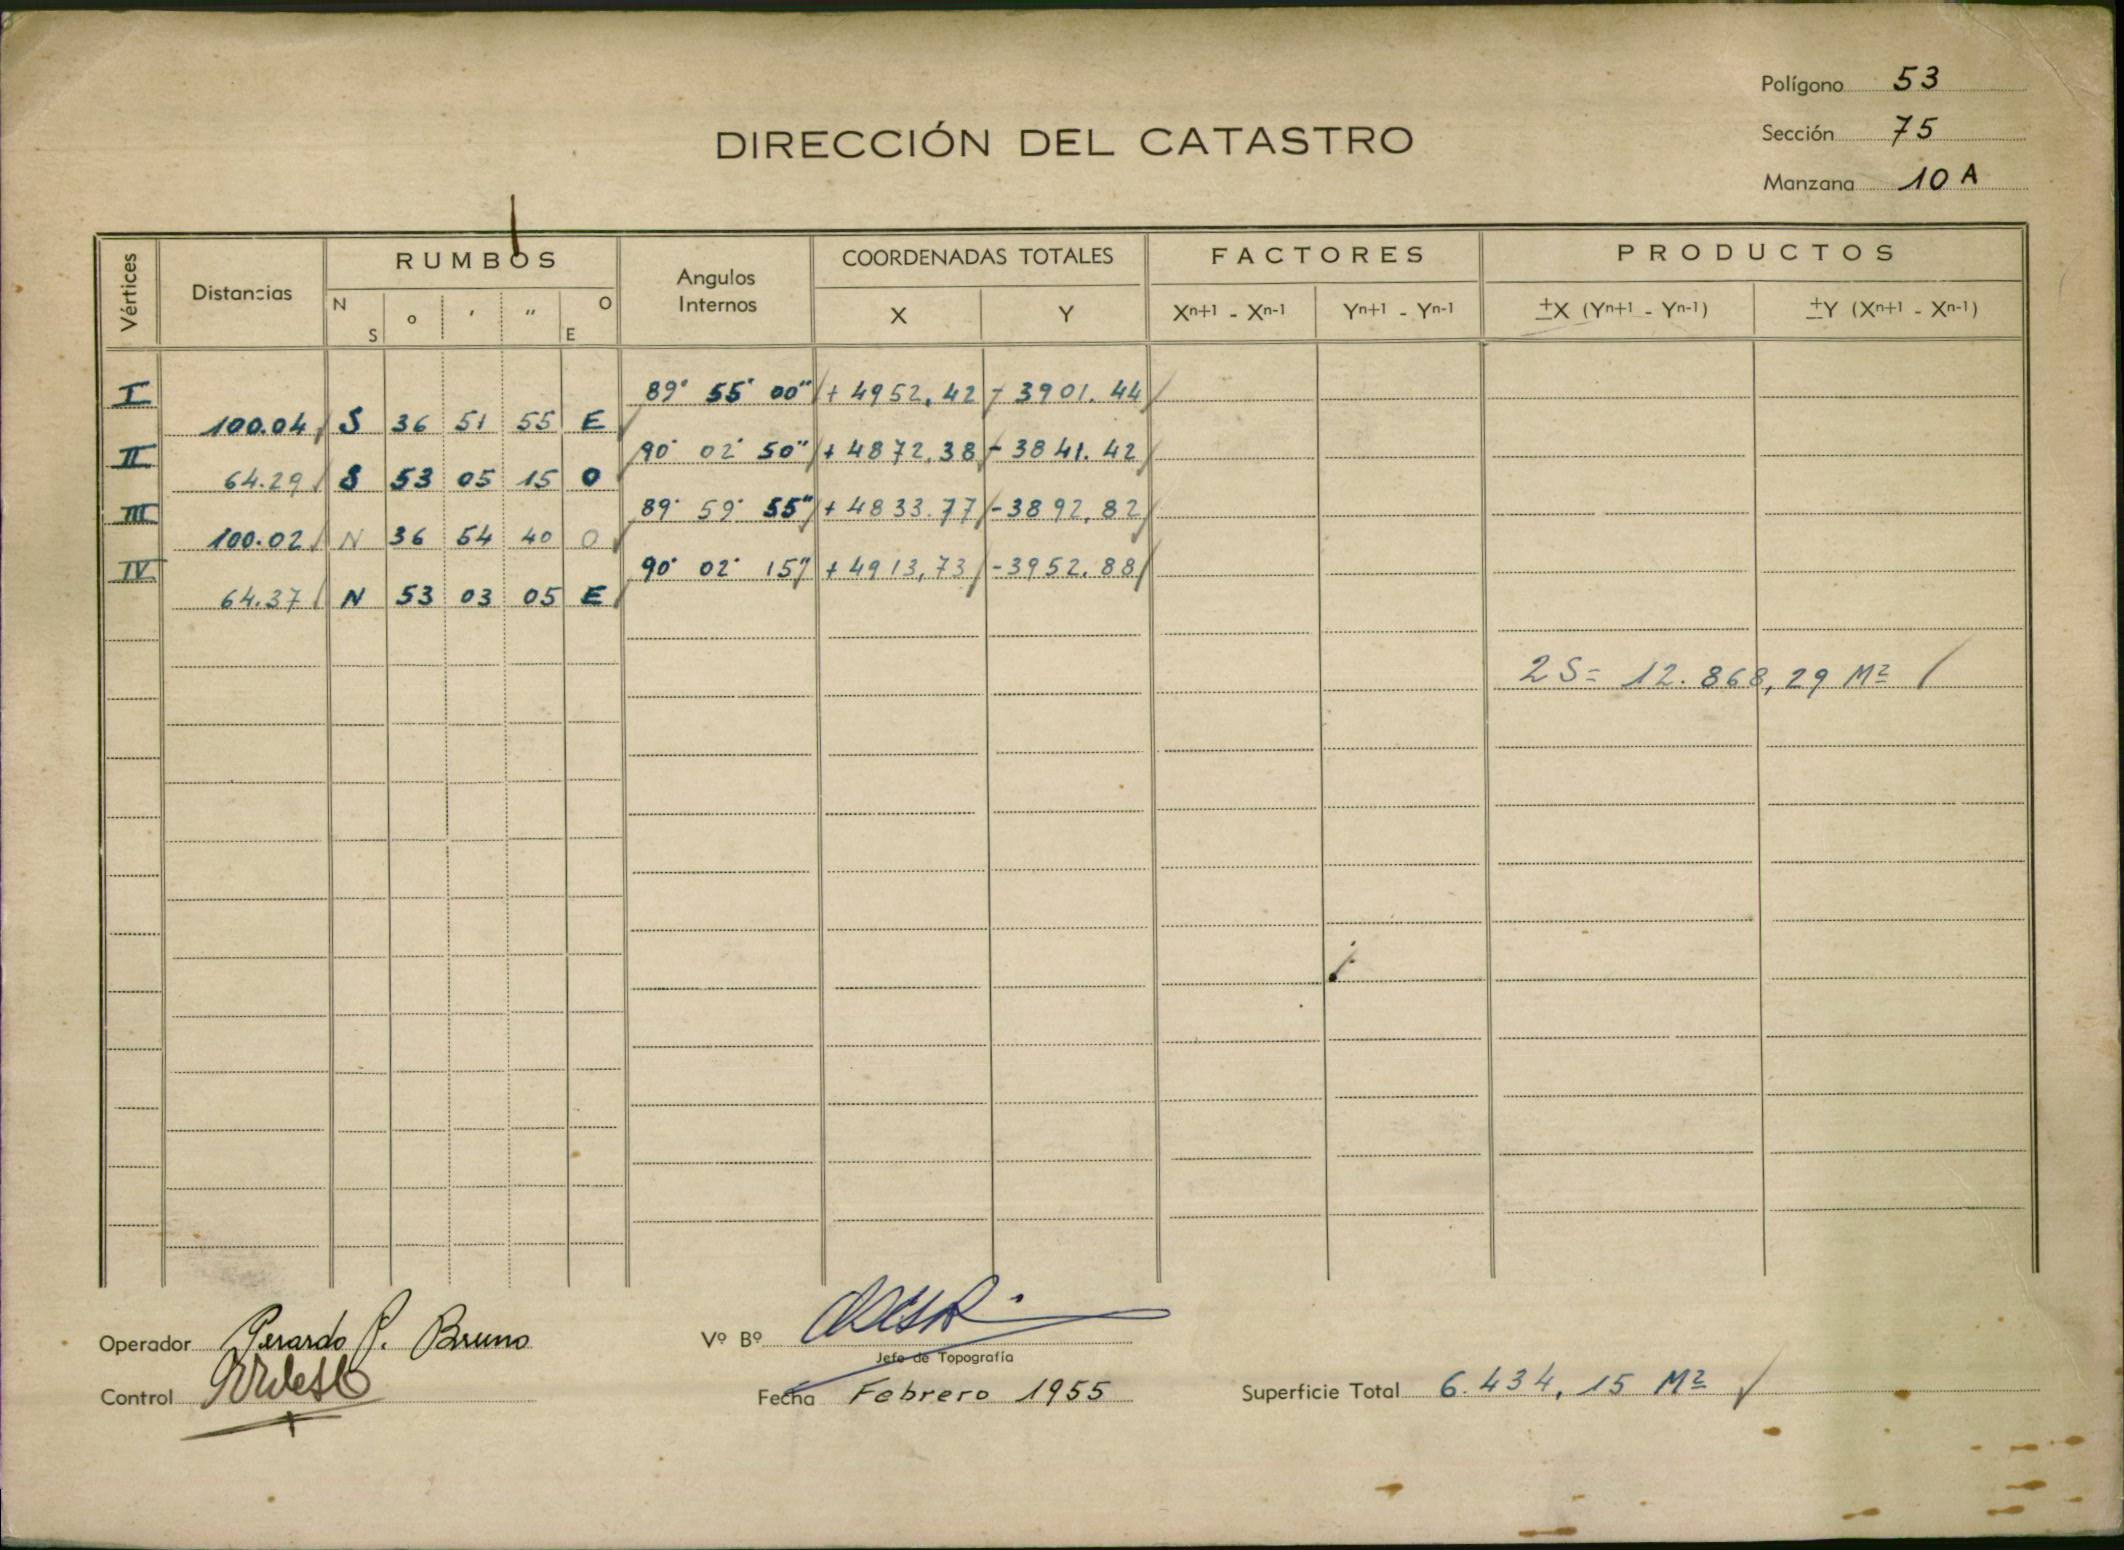 Polígono 53
DIRECCIÓN DEL CATASTRO
Sección 75
Manzana 10 A
Vértices Distancias RUMBOS Angulos Internos COORDENADAS TOTALES FACTORES PRODUCTOS
N S ° ' " O E X Y Xn+1 - Xn-1 Yn+1 - Yn-1 ±X (Yn+1 - Yn-1) ±Y (Xn+1 - Xn-1)
I 89° 55' 00" + 4952,42 - 3901.44
100.04 S 36 51 55 E
II 90° 02' 50" + 4872,38 - 3841.42
64.29 S 53 05 15 O
III 89° 59' 55" + 4833.77 - 3892,82
100.02 N 36 54 40 O
IV 90° 02' 15" + 4913,73 - 3952.88
64.37 N 53 03 05 E
2 S = 12.868,29 M²
Operador Gerardo P. Bruno Vº Bº
Jefe de Topografía
Control Fecha Febrero 1955 Superficie Total 6.434,15 M²